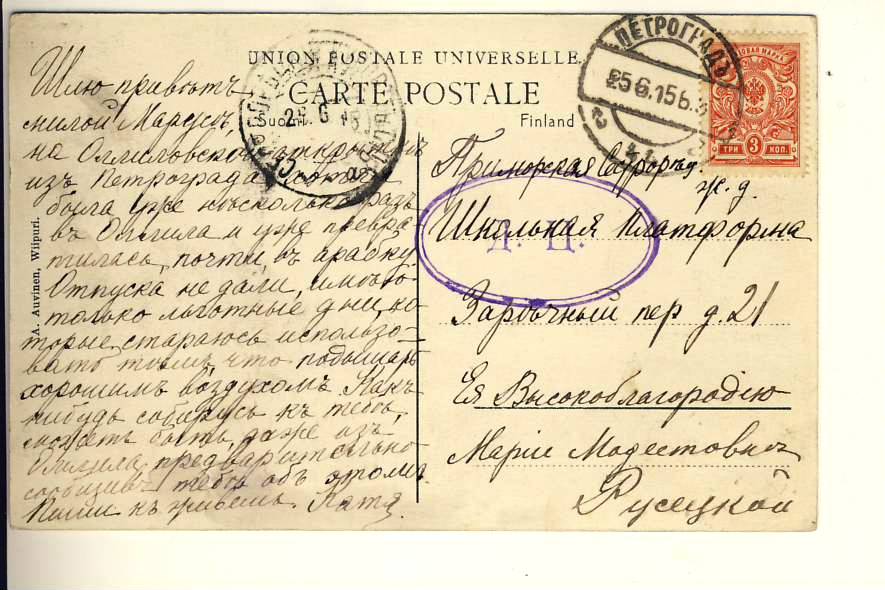 UNION POSTALE UNIVERSELLE.
CARTE POSTALE
Suomi Finland
ПЕТРОГРАДЪ
25 6.15 6.
ПОЧТОВАЯ МАРКА
ТРИ 3 КОП.
25 6 15
A. Auvinen, Wiipuri.
Шлю привѣтъ
милой Марусѣ,
на Оллиловской открыткѣ
изъ Петрограда,
была уже нѣсколько разъ
въ Оллила и уже превра
тилась почти въ арабку
Отпуска не дали, имѣю
только льготные дни, ко
торые стараюсь использо-
вать тѣмъ, что подышать
хорошимъ воздухомъ Какъ
нибудь соберусь къ тебѣ,
можетъ быть даже изъ
Оллила, предварительно
сообщивъ тебѣ объ этомъ
Пиши какъ живешь. Катя.
Приморская ж. д.
Школьная Платформа
пер д. 21
Ея Высокоблагородію
Маріи Модестовнѣ
Русецкой